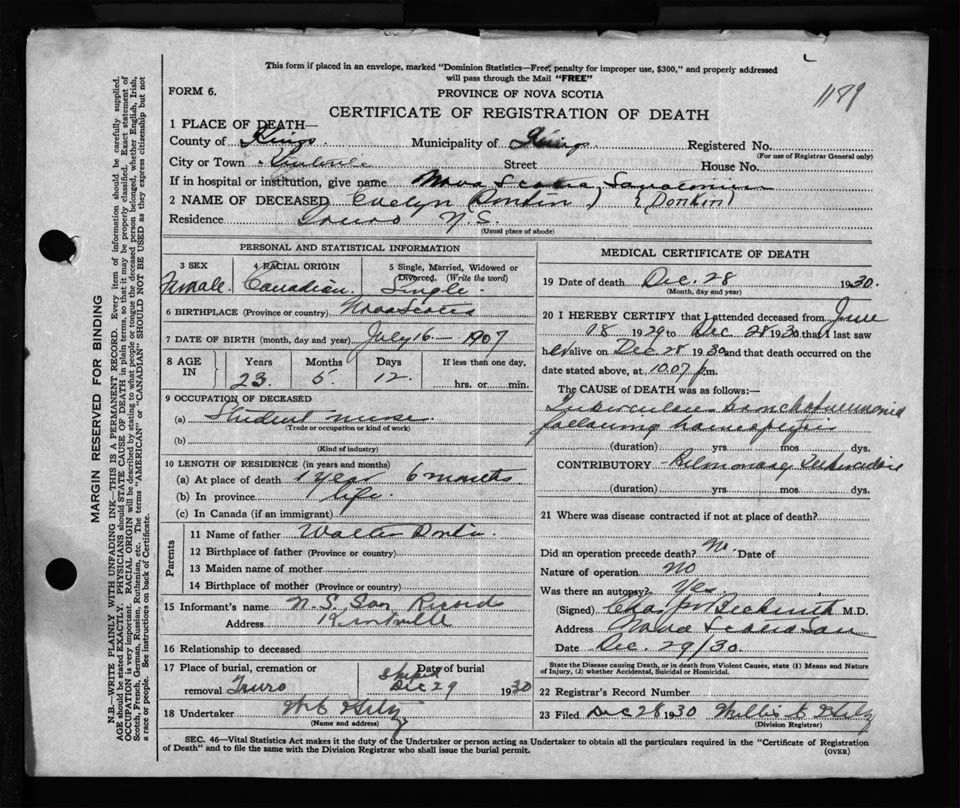 This form if placed in an envelope, marked "Dominion Statistics—Free, penalty for improper use, $300," and properly addressed
will pass through the Mail "FREE"
FORM 6.
PROVINCE OF NOVA SCOTIA
1189
CERTIFICATE OF REGISTRATION OF DEATH
1 PLACE OF DEATH—
County of Kings Municipality of Kings Registered No.
(For use of Registrar General only)
City or Town Street House No.
If in hospital or institution, give name Nova Scotia Sanatorium
2 NAME OF DECEASED Evelyn (Donkin) (Donkin)
Residence Truro N.S.
(Usual place of abode)
PERSONAL AND STATISTICAL INFORMATION
3 SEX Female
4 RACIAL ORIGIN Canadian
5 Single, Married, Widowed or
Divorced. (Write the word)
Single
6 BIRTHPLACE (Province or country) Nova Scotia
7 DATE OF BIRTH (month, day and year) July 16 — 1907
8 AGE IN Years Months Days If less than one day,
23 5 12 hrs. or min.
9 OCCUPATION OF DECEASED
(a) Student nurse
(Trade or occupation or kind of work)
(b)
(Kind of industry)
10 LENGTH OF RESIDENCE (in years and months)
(a) At place of death 1 year 6 months
(b) In province life
(c) In Canada (if an immigrant)
Parents
11 Name of father Walter
12 Birthplace of father (Province or country)
13 Maiden name of mother
14 Birthplace of mother (Province or country)
15 Informant's name N.S. San Records
Address Kentville
16 Relationship to deceased
17 Place of burial, cremation or Date of burial
removal Truro Shipped Dec 29 1930
18 Undertaker
(Name and address)
MEDICAL CERTIFICATE OF DEATH
19 Date of death Dec. 28 1930.
(Month, day and year)
20 I HEREBY CERTIFY that I attended deceased from June
18 1929 to Dec 28 1930 that I last saw
her alive on Dec 28 1930 and that death occurred on the
date stated above, at 10.07 p.m.
The CAUSE of DEATH was as follows:—
Tuberculous bronchopneumonia
following
(duration) yrs mos dys.
CONTRIBUTORY Pulmonary Tuberculosis
(duration) yrs mos dys.
21 Where was disease contracted if not at place of death?
Did an operation precede death? No Date of
Nature of operation No
Was there an autopsy? Yes
(Signed) Chas Beckwith M.D.
Address Nova Scotia San
Date Dec. 29/30.
State the Disease causing Death, or in death from Violent Causes, state (1) Means and Nature
of Injury, (2) whether Accidental, Suicidal or Homicidal.
22 Registrar's Record Number
23 Filed Dec 28 1930
(Division Registrar)
SEC. 46—Vital Statistics Act makes it the duty of the Undertaker or person acting as Undertaker to obtain all the particulars required in the "Certificate of Registration
of Death" and to file the same with the Division Registrar who shall issue the burial permit. (OVER)
MARGIN RESERVED FOR BINDING
N.B.—WRITE PLAINLY WITH UNFADING INK—THIS IS A PERMANENT RECORD. Every item of information should be carefully supplied.
AGE should be stated EXACTLY. PHYSICIANS should STATE CAUSE OF DEATH in plain terms, so that it may be properly classified. Exact statement of
OCCUPATION is very important. RACIAL ORIGIN will be described by stating to what people or tongue the deceased person belonged, whether English, Irish,
Scotch, French, German, Russian, Ruthenian, etc. The terms "AMERICAN" or "CANADIAN" SHOULD NOT BE USED as they express citizenship but not
a race or people. See instructions on back of Certificate.